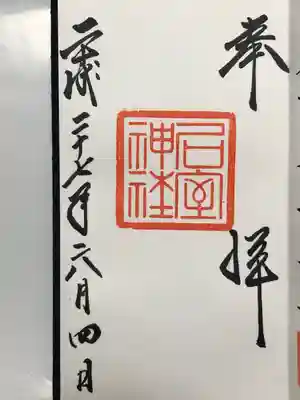 奉拝
石室
神社
平成二十七年八月四日